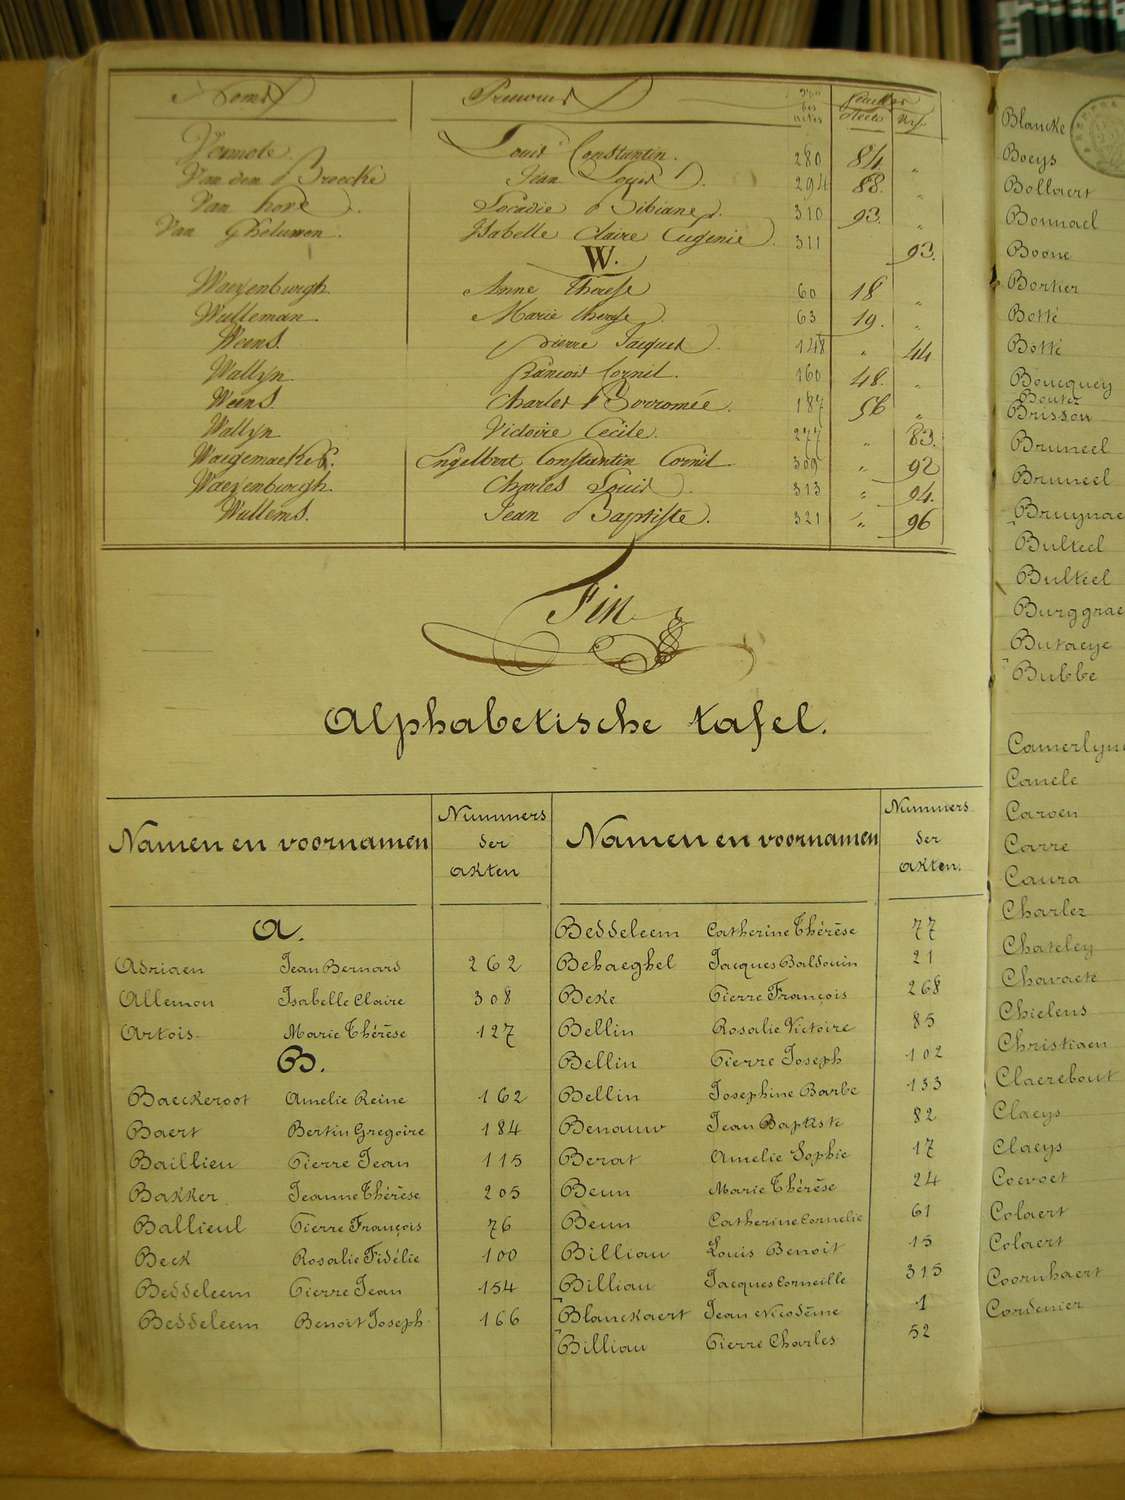 Noms Prenoms Nos des actes Feuillet Recto Vso
Vermote Louis Constantin. 280 84. "
Van den Broecke Jean Louis. 294 88. "
Van hove. Leocadie Bibiane. 310 93. "
Van Gheluwen. Isabelle Claire Eugenie. 311 93.
W.
Waeyenburgh Anne Therese 60 18 "
Wulleman. Marie therese. 63 19. "
Weens. Pierre Jacques. 148 " 44
Wallyn François Cornil. 160 48. "
Weens. Charles Borromée. 187 56 "
Wallyn. Victoire Cecile. 277 " 83.
Waegemackers. Engelbert Constantin Cornil. 309 " 92
Waeyenburgh. Charles Louis. 313 " 94.
Willems. Jean Baptiste. 321 " 96
Fin
Alphabetische tafel.
Namen en voornamen Nummers der akten Namen en voornamen Nummers der akten.
A.
Adriaen Jean Bernard 262
Allemou Isabelle Claire 308
Artois Marie Thérèse 127
B.
Baeckeroot Amelie Reine 162
Baert Bertin Gregoire 184
Baillieu Pierre Jean 115
Bakker Jeanne Thérèse 205
Ballieul Pierre François 76
Beck Rosalie Fidélie 100
Beddeleem Pierre Jean 154
Beddeleem Benoit Joseph 166
Beddeleem Catherine Thérèse 77
Behaeghel Jacques Baldouin 21
Beke Pierre François 268
Bellin Rosalie Victoire 85
Bellin Pierre Joseph 102
Bellin Josephine Barbe 133
Benauw Jean Baptiste 82
Berat Amelie Sophie 17
Beun Marie Thérèse 24
Beun Catherine Cornelie 61
Billiau Louis Benoit 15
Billiau Jacques Corneille 315
Blanckaert Jean Nicodème 1
Billiau Pierre Charles 52
Blancke
Boeys
Bollaert
Bonnael
Boone
Bortier
Botté
Botté
Boucquey
Bouter
Brisson
Bruneel
Bruneel
Bruynae
Bulteel
Bulteel
Burggrae
Butaeye
Bubbe
Camerlyn
Canele
Caroen
Carre
Caura
Charlez
Chateley
Chavaete
Chielens
Christiaen
Claerebout
Claeys
Claeys
Coevoet
Colaert
Colaert
Coornhaert
Cordenier